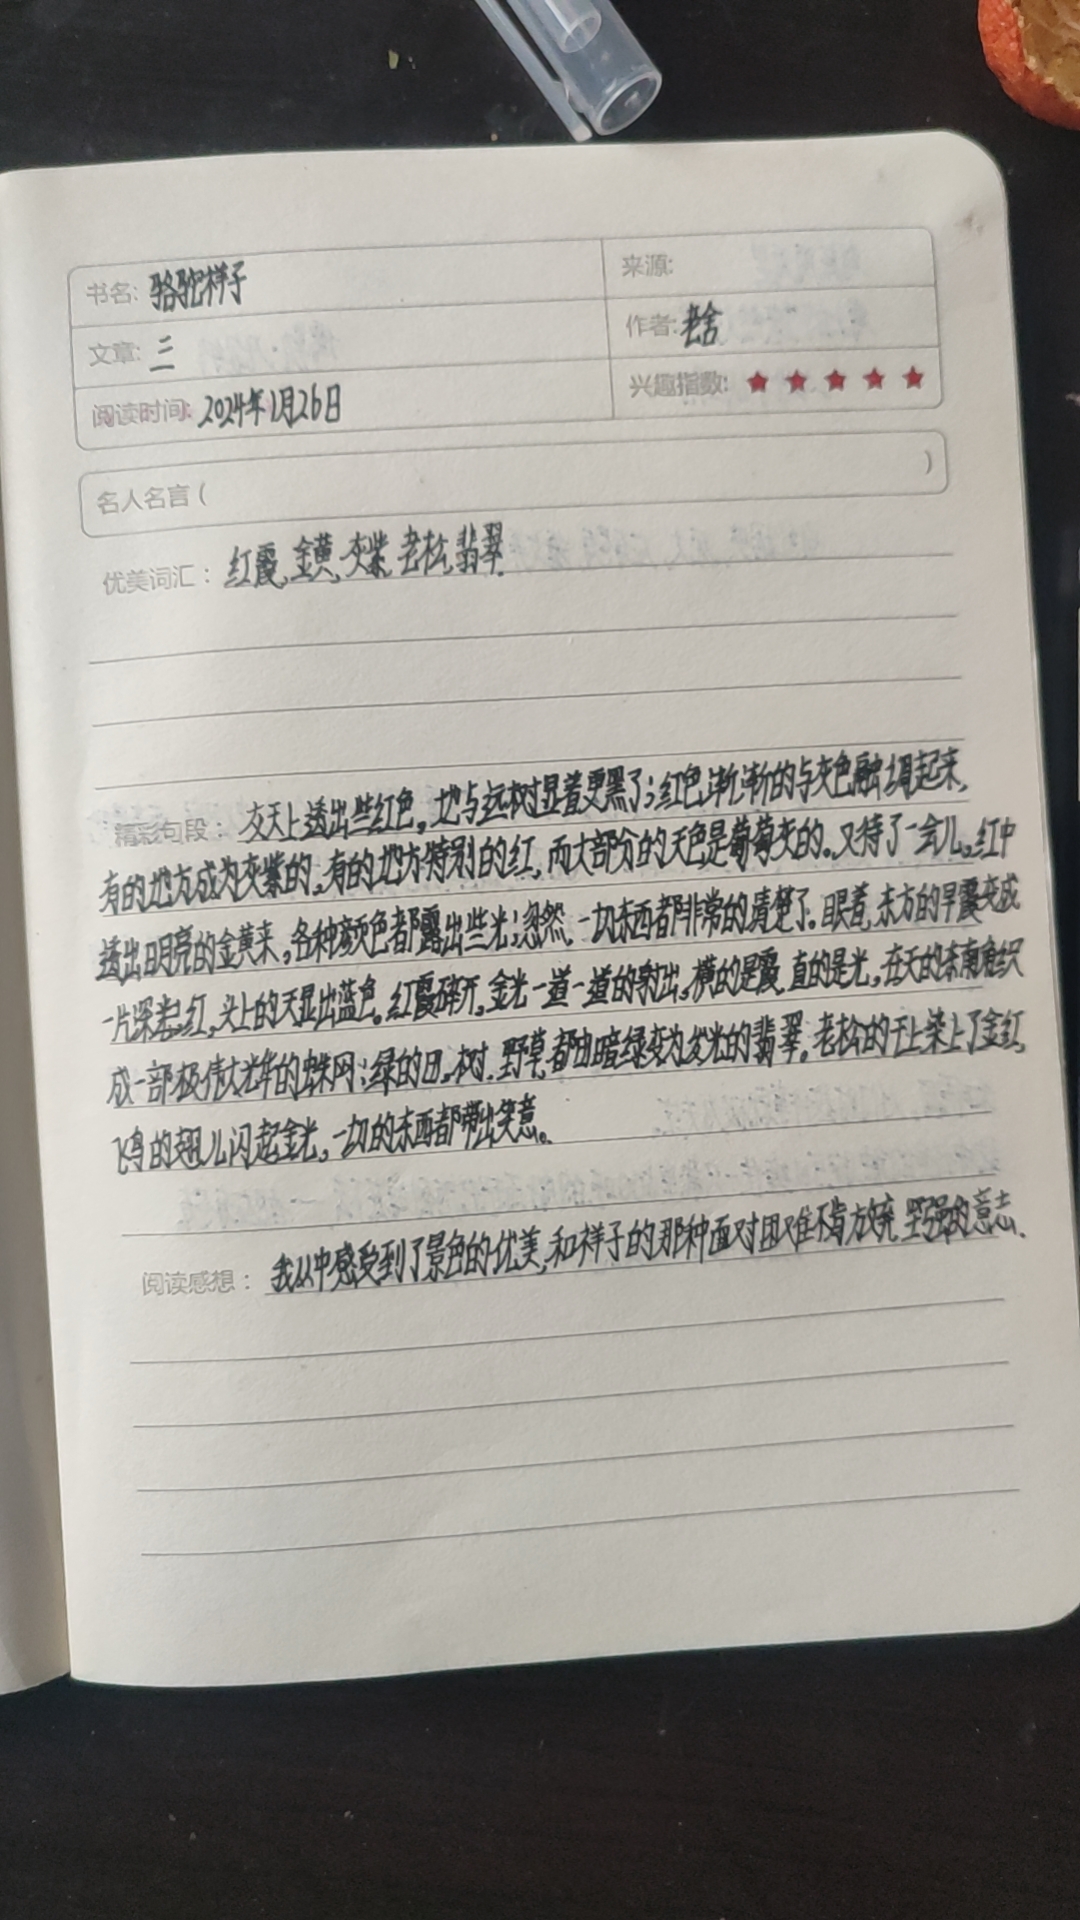 书名: 骆驼祥子
来源:
文章: 三
作者: 老舍
阅读时间: 2024年1月26日
兴趣指数: ★ ★ ★ ★ ★
名人名言 ( )
优美词汇: 红霞、金黄、灰紫、老松、翡翠
精彩句段: 灰天上透出些红色，地与远树显着更黑了；红色渐渐的与灰色融调起来，
有的地方成为灰紫的，有的地方特别的红，而大部分的天色是葡萄灰的。又待了一会儿，红中
透出明亮的金黄来，各种颜色都露出些光；忽然，一切东西都非常的清楚了。眼着，东方的早霞变成
一片深红，头上的天显出蓝色。红霞碎开，金光一道一道的射出，横的是霞，直的是光，在天的东南角织
成一部极伟大光华的蛛网：绿的田，树，野草，都由暗绿变为发光的翡翠。老松的干上染上了金红，
飞鸟的翅儿闪起金光，一切的东西都带出笑意。
阅读感想: 我从中感受到了景色的优美，和祥子的那种面对困难不肯放弃，坚强的意志。